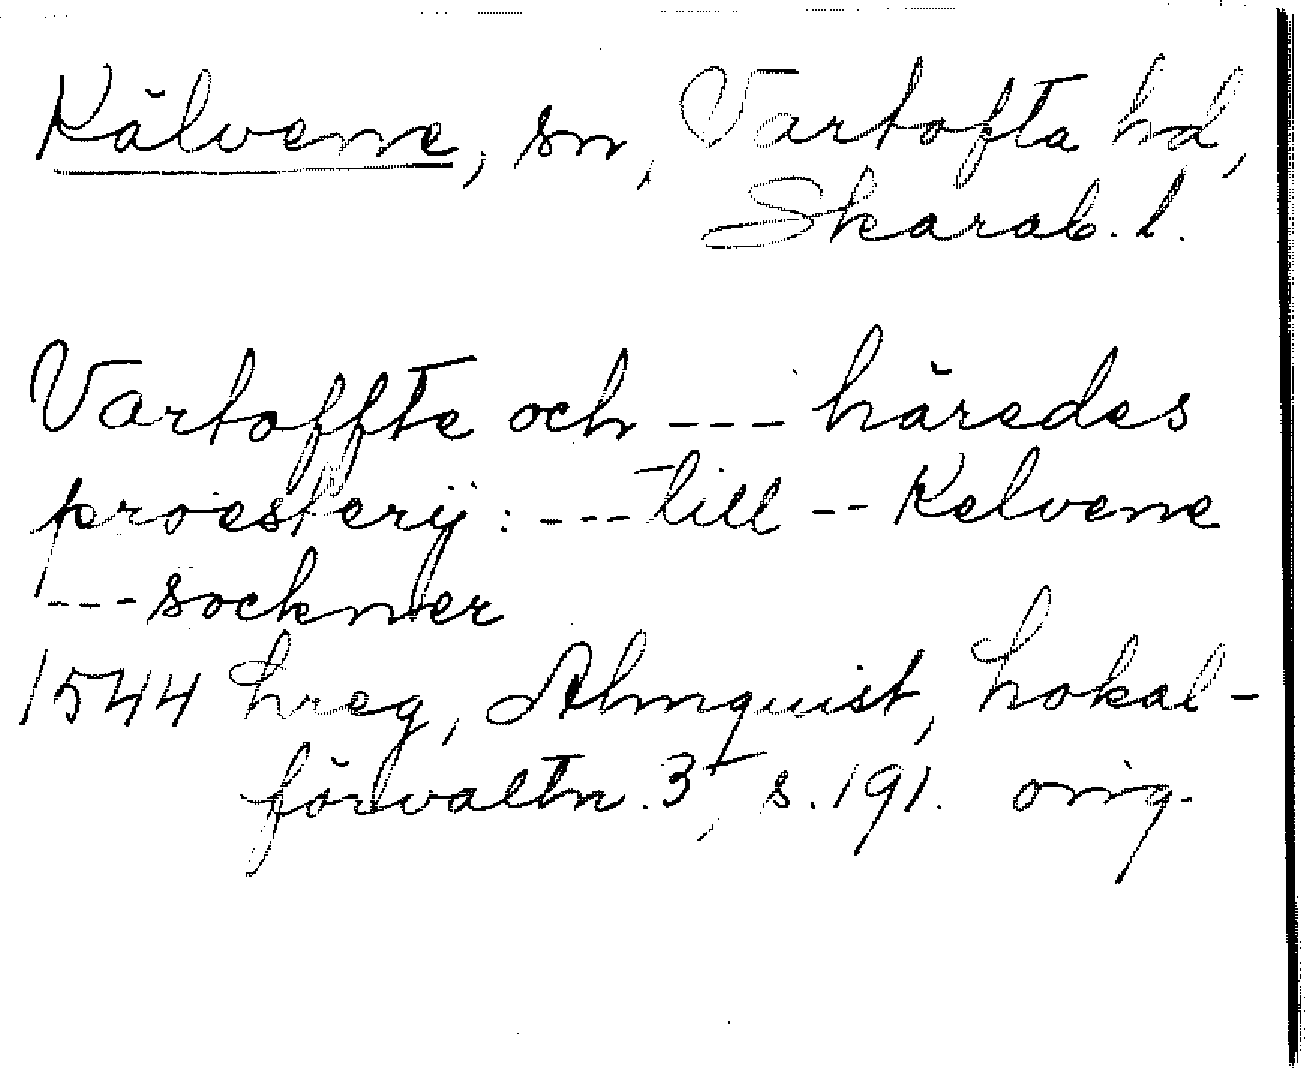 Kälvene, sn, Vartofta hd,
Skarab. l.
Vartoffte och --- häredes
proesterÿ: --- till -- Kelvene
--- sockner
1544 hreg, Almquist, Lokal-
förvaltn. 3, s. 191. orig.